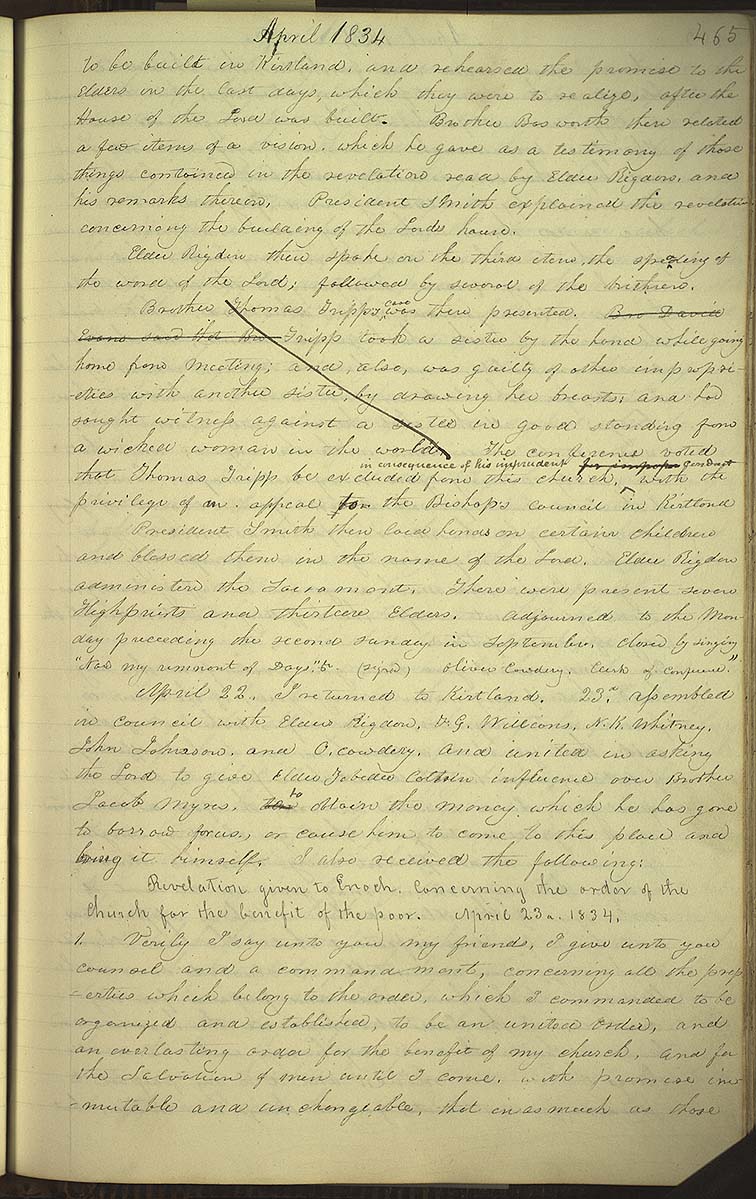 April 1834
465
to be built in Kirtland, and rehearsed the promise to the
Elders in the last days, which they were to realize, after the
House of the Lord was built. Brother Bosworth then related
a few items of a vision, which he gave as a testimony of those
things contained in the revelation read by Elder Rigdon, and
his remarks thereon. President Smith explained the revelation
concerning the building of the Lords house.
Elder Rigdon then spoke on the third item, the spreding of
the word of the Lord; followed by several of the brethren.
Brother Thomas Tripps case was then presented. Bro David
Evans said that Bro Tripp took a sister by the hand while going
home from meeting; and, also, was guilty of other impropri-
-eties with another sister, by drawing her breasts; and had
sought witness against a sister in good standing from
a wicked woman in the world. The conference voted
in consequence of his imprudent for improper conduct
that Thomas Tripp be excluded from this church, with the
privilege of an appeal to the Bishop's council in Kirtland
President Smith then laid hands on certain children
and blessed them in the name of the Lord. Elder Rigdon
administerd the Sacrament. There were present seven
Highpriests and thirteen Elders. adjourned to the Mon-
day preceeding the second sunday in September. Closed by singing
"Now my remnant of Days," &c. (signed) Oliver Cowdery. Clerk of Conference."
April 22. I returned to Kirtland. 23d. assembled
in council with Elders Rigdon, F. G. Williams, N. K. Whitney,
John Johnson, and O. Cowdery, and united in asking
the Lord to give Elder Zebedee Coltrin influence over Brother
Jacob Myres, to obtain the money which he has gone
to borrow for us, or cause him to come to this place and
bring it himself. I also received the following:
Revelation given to Enoch. Concerning the order of the
Church for the benefit of the poor. April 23d. 1834.
1. Verily I say unto you my friends, I give unto you
counsel and a commandment, concerning all the prop
-erties which belong to the order, which I commanded to be
organized and established, to be an united order, and
an everlasting order for the benefit of my church, and for
the Salvation of men until I come, with promise im-
-mutable and unchangeable, that inasmuch as those